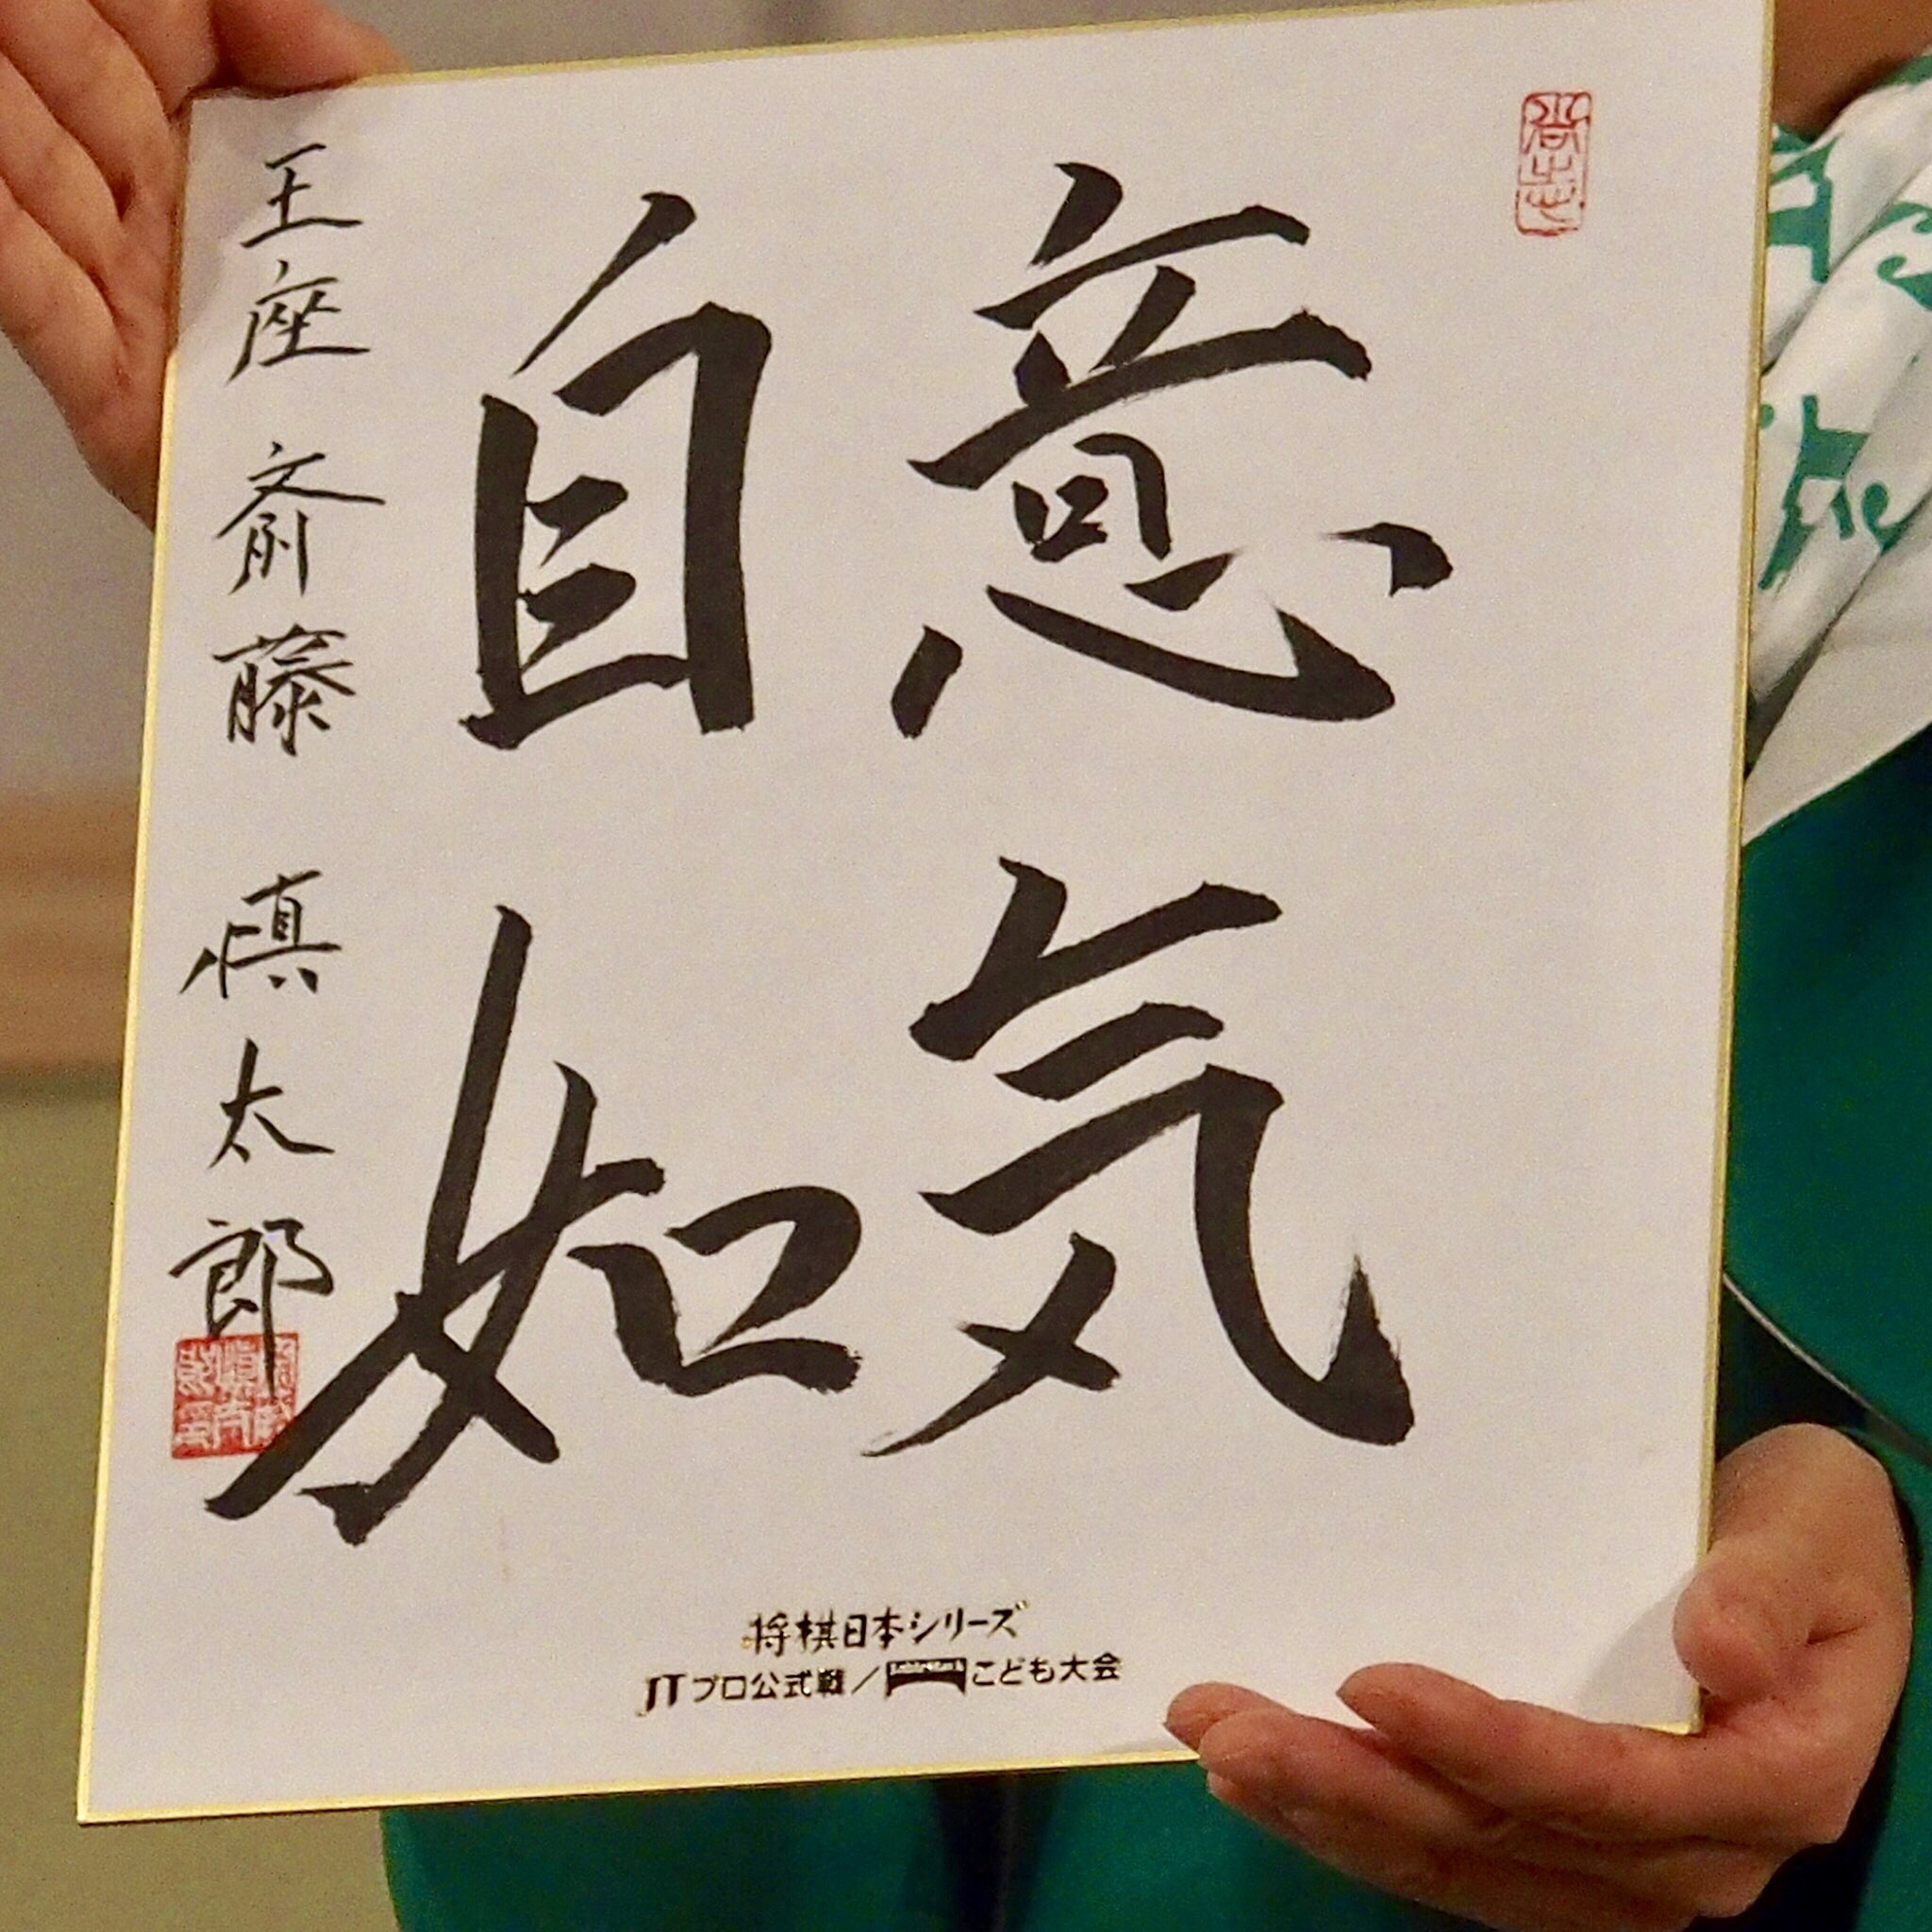 意気
自如
王座 斎藤 慎太郎
将棋日本シリーズ
JTプロ公式戦／こども大会